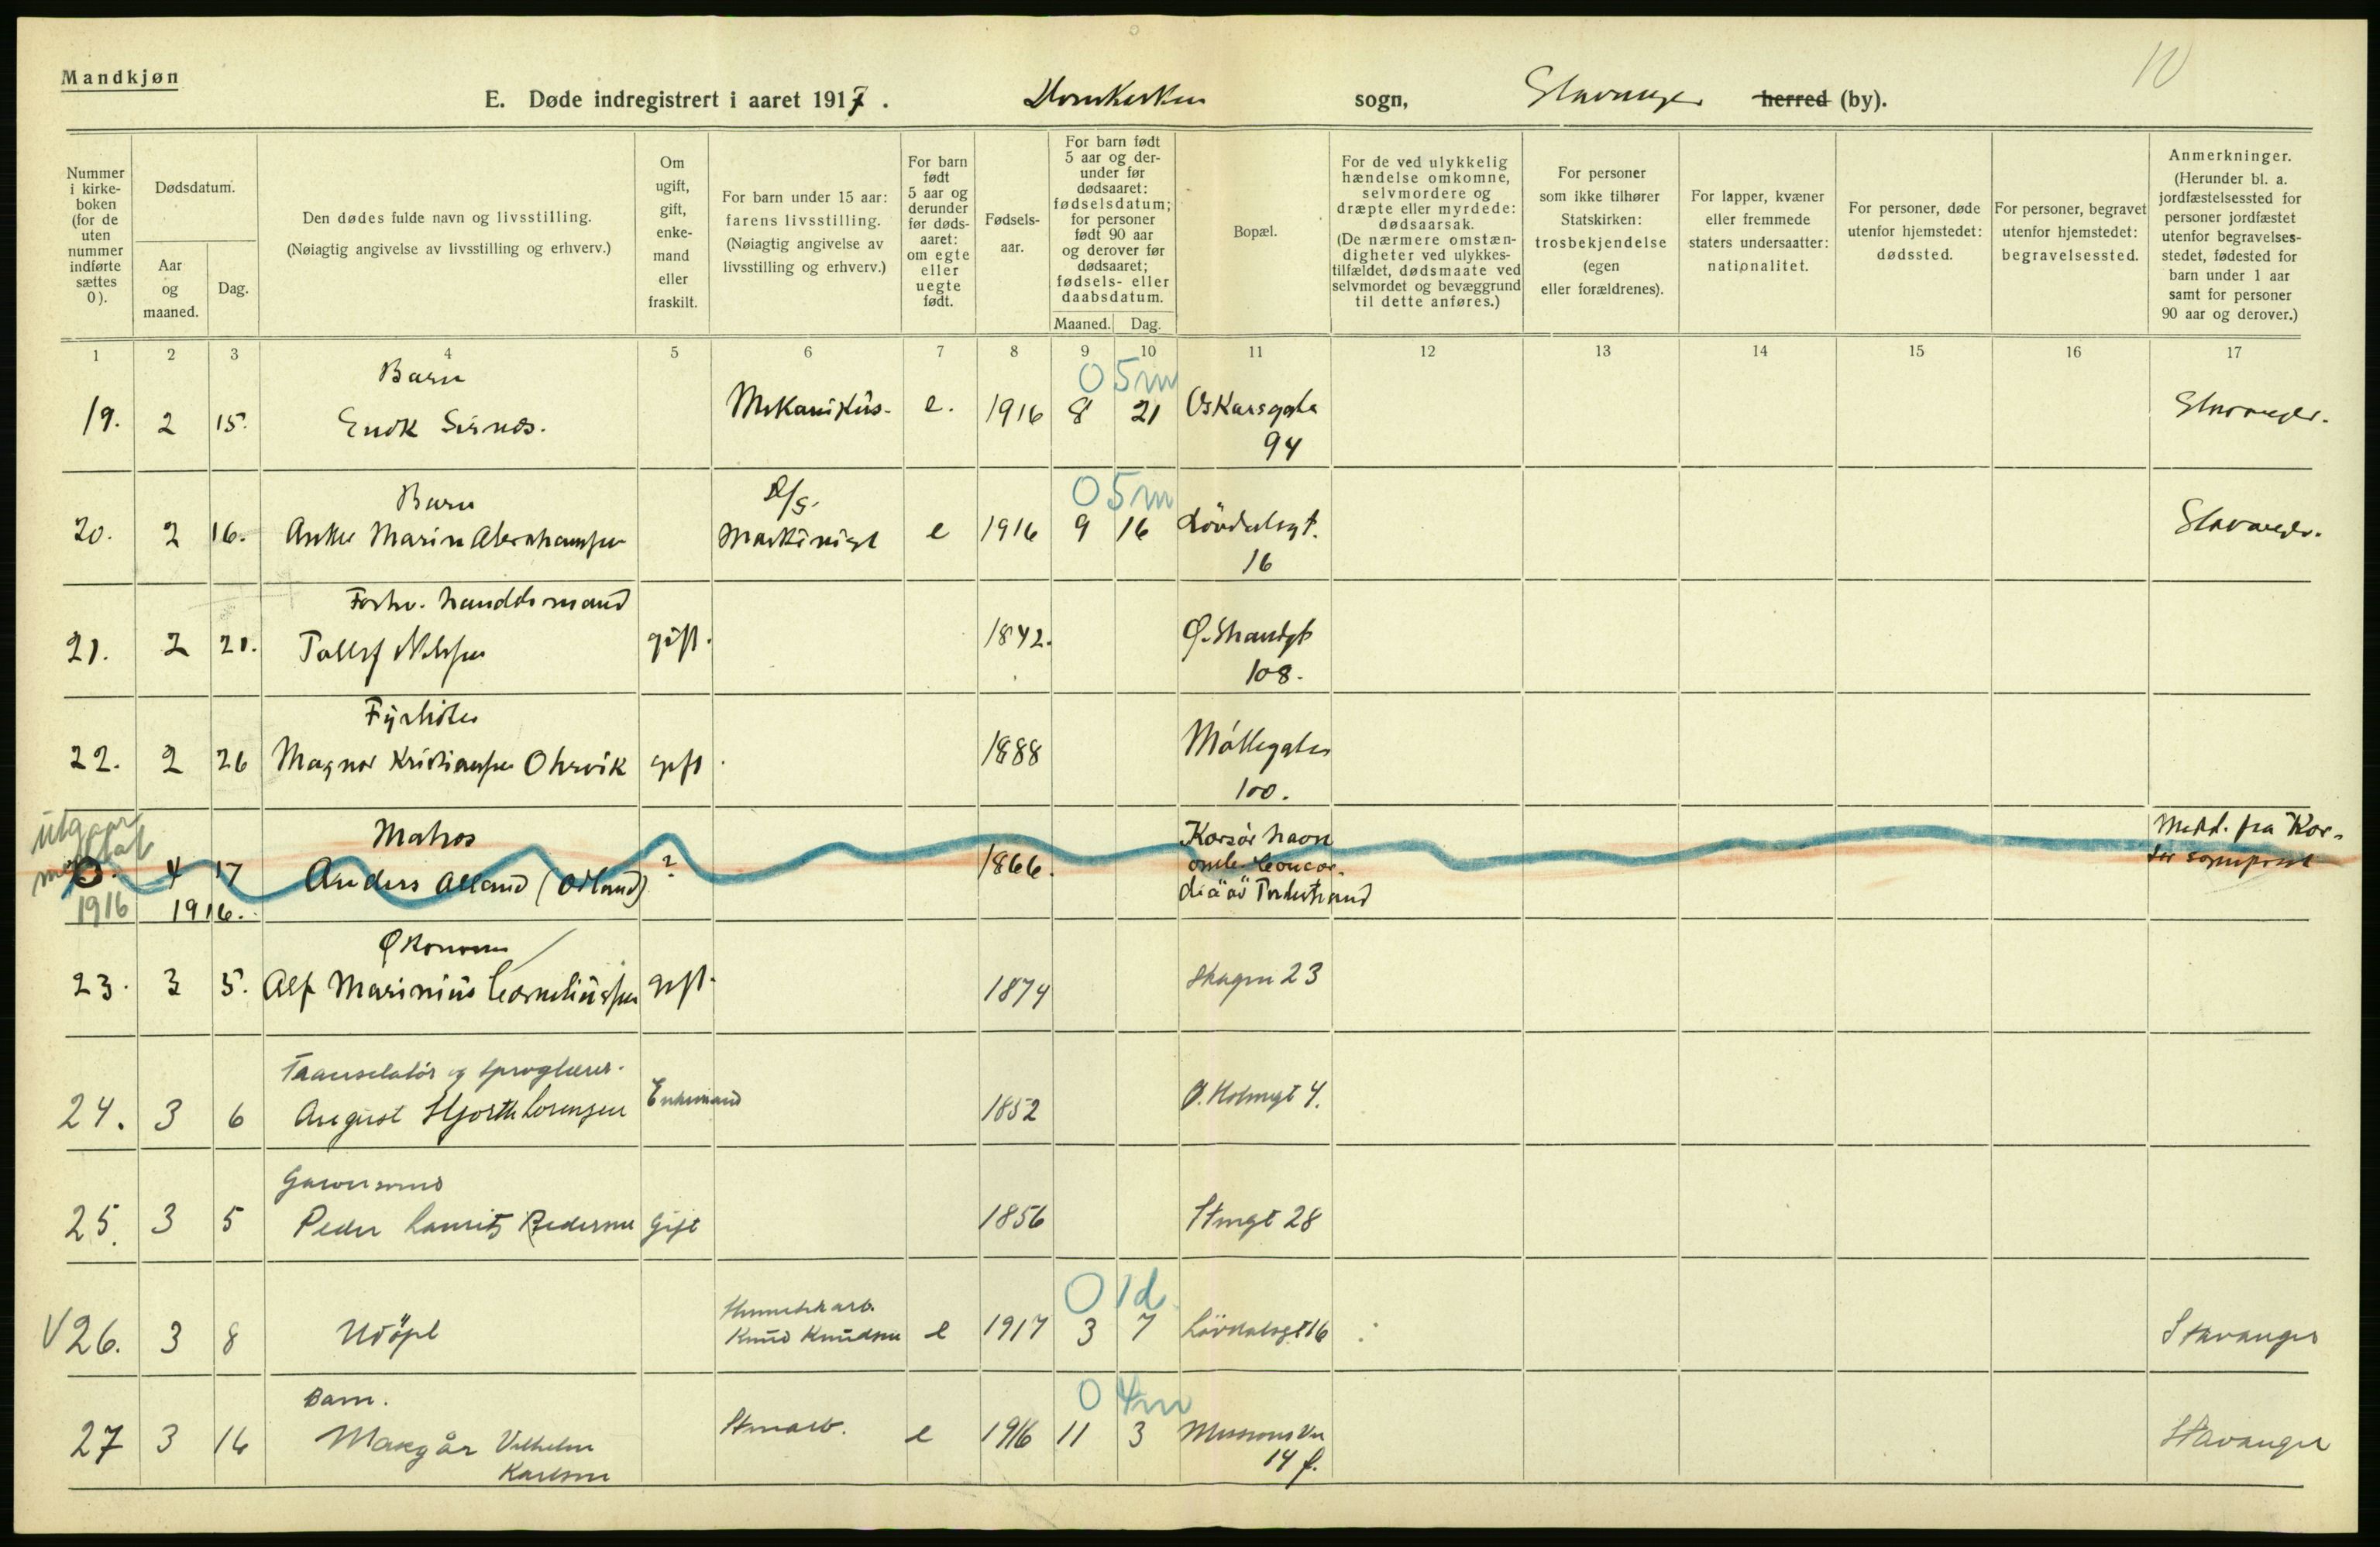 Mandkjøn
10
E. Døde indregistrert i aaret 1917. Domkirken sogn, Stavanger herred (by).
Nummer i kirke-boken (for de uten nummer indførte sættes 0).
Dødsdatum.
Aar og maaned.
Dag.
Den dødes fulde navn og livsstilling.
(Nøiagtig angivelse av livsstilling og erhverv.)
Om ugift, gift, enke-mand eller fraskilt.
For barn under 15 aar: farens livsstilling. (Nøiagtig angivelse av livsstilling og erhverv.)
For barn født 5 aar og derunder før døds-aaret: om egte eller uegte født.
Fødsels-aar.
For barn født 5 aar og der-under før dødsaaret: fødselsdatum; for personer født 90 aar og derover før dødsaaret; fødsels- eller daabsdatum.
Maaned. Dag.
Bopæl.
For de ved ulykkelig hændelse omkomne, selvmordere og dræpte eller myrdede: dødsaarsak. (De nærmere omstæn-digheter ved ulykkes-tilfældet, dødsmaate ved selvmordet og bevæggrund til dette anføres.)
For personer som ikke tilhører Statskirken: trosbekjendelse (egen eller forældrenes).
For lapper, kvæner eller fremmede staters undersaatter: nationalitet.
For personer, døde utenfor hjemstedet: dødssted.
For personer, begravet utenfor hjemstedet: begravelsessted.
Anmerkninger. (Herunder bl. a. jordfæstelsessted for personer jordfæstet utenfor begravelses-stedet, fødested for barn under 1 aar samt for personer 90 aar og derover.)
1 2 3 4 5 6 7 8 9 10 11 12 13 14 15 16 17
Barn 0 5m
19. 2 15. Mekanikus- e. 1916 8 21 Oskarsgate Stavanger.
94
Barn 0 5m
20. 2 16. Marin Abrahamsen Maskinist e 1916 9 16 Lövdalsgt. Stavanger.
16
Forhv. handelsmand
21. 2 21. Tallef Nilssen gift. 1842. Ø. Strandgt
108.
Fyrbøter
22. 2 26 Magnor Kristiansen Ohrvik gift 1888 Møllegaten
100.
utgaar
Matros Korsör havn Medd. fra Kor-
0. 4 17 Anders Aaland (Odland) ? 1866. ombr. Concor- sör sogneprest
1916 1916. dia av Tvedestrand
Økonom
23. 3 5. Alf Marinius Corneliussen gift. 1874 Skagen 23
Translatör og sproglærer.
24. 3 6 August Hjorth Lorensen Enkemand 1852 Ø. Holmegt 4.
Garversvend
25. 3 5 Peder Laurits Pedersen Gift 1856 Storgt 28
0 1d
V 26. 3 8 Udöpt Knud Knudsen e 1917 3 7 Lövdalsgt 16 Stavanger
Barn. 0 4m
27 3 16 Margår Vilhelm Karlsen e 1916 11 3 Misionsvn 14 f. Stavanger